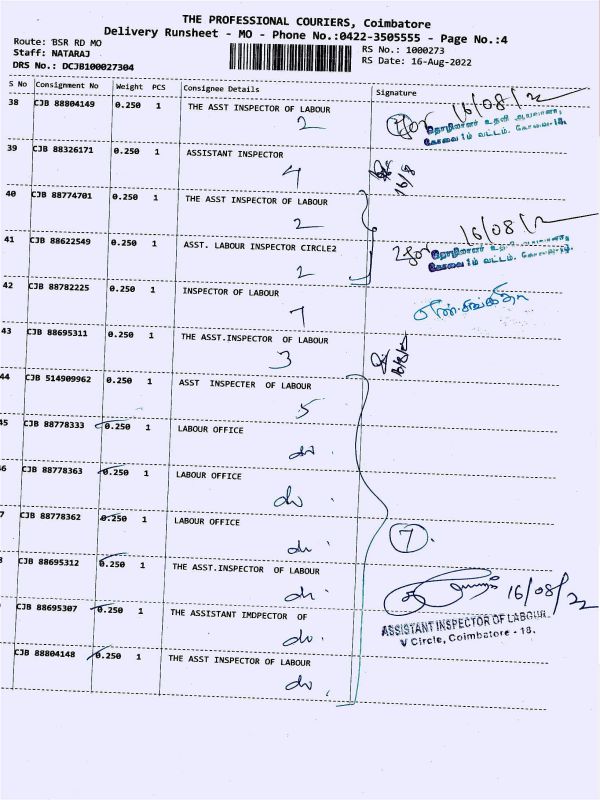 THE PROFESSIONAL COURIERS, Coimbatore
Delivery Runsheet - MO - Phone No.:0422-3505555 - Page No.:4
Route: BSR RD MO
RS No.: 1000273
Staff: NATARAJ
RS Date: 16-Aug-2022
DRS No.: DCJB100027304
S No Consignment No Weight PCS Consignee Details Signature
38 CJB 88804149 0.250 1 THE ASST INSPECTOR OF LABOUR
2
16/08/22
தொழிலாளர் உதவி ஆய்வாளர்,
கோவை 1ம் வட்டம். கோவை-18.
39 CJB 88326171 0.250 1 ASSISTANT INSPECTOR
4
16/8
40 CJB 88774701 0.250 1 THE ASST INSPECTOR OF LABOUR
2
16/08/22
41 CJB 88622549 0.250 1 ASST. LABOUR INSPECTOR CIRCLE2
2
தொழிலாளர் உதவி ஆய்வாளர்
கோவை 1ம் வட்டம். கோவை-18.
42 CJB 88782225 0.250 1 INSPECTOR OF LABOUR
7
43 CJB 88695311 0.250 1 THE ASST.INSPECTOR OF LABOUR
3
16/8/22
44 CJB 514909962 0.250 1 ASST INSPECTER OF LABOUR
5
45 CJB 88778333 0.250 1 LABOUR OFFICE
do
46 CJB 88778363 0.250 1 LABOUR OFFICE
do
7 CJB 88778362 0.250 1 LABOUR OFFICE
do
7
CJB 88695312 0.250 1 THE ASST.INSPECTOR OF LABOUR
do
16/08/22
CJB 88695307 0.250 1 THE ASSISTANT IMDPECTOR OF
do
ASSISTANT INSPECTOR OF LABOUR
V Circle, Coimbatore - 18.
CJB 88804148 0.250 1 THE ASST INSPECTOR OF LABOUR
do